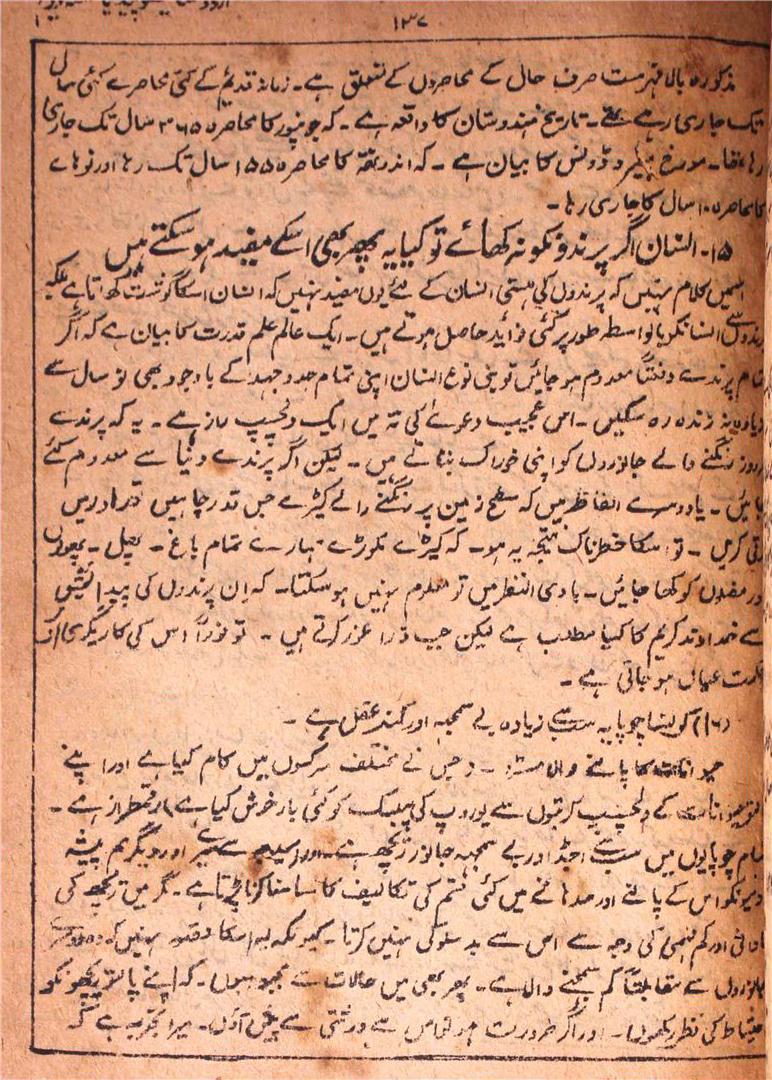 ۱۳۷
مذکورہ بالا فہرست صرف حال کے محاصروں کے متعلق ہے۔ زمانہ قدیم کے کئی محاصرے کئی سال
تک جاری رہے تھے۔ تاریخ ہندوستان کا واقعہ ہے۔ کہ جونپور کا محاصرہ ۳۶۵ سال تک جاری
رہا تھا۔ مورخ ہیروڈوٹس کا بیان ہے۔ کہ کا محاصرہ ۱۵۵ سال تک رہا اور
کا محاصرہ ۱۰ سال کا جاری رہا۔
۱۵۔ انسان اگر پرندونکو نہ کھائے تو کیا یہ پھر بھی اسکے مفید ہو سکتے ہیں
اسمیں کلام نہیں کہ پرندوں کی ہستی انسان کے لئے یوں مفید نہیں کہ انسان اسکا گوشت کھاتا ہے بلکہ
پرندوں سے انسانکو بالواسطہ طور پر کئی فوائد حاصل ہوتے ہیں۔ ایک عالم علم قدرت کا بیان ہے کہ اگر
تمام پرندے دفعتاً معدوم ہو جائیں تو بنی نوع انسان اپنی تمام جدوجہد کے باوجود بھی نو سال سے
زیادہ نہ زندہ رہ سکیں۔ اس عجیب دعوے کی تہ میں ایک دلچسپ راز ہے۔ یہ کہ پرندے
ہر روز رنگنے والے جانوروں کو اپنی خوراک بناتے ہیں۔ لیکن اگر پرندے دنیا سے معدوم کئے
جائیں۔ یا دوسرے الفاظ میں کہ سطح زمین پر رنگنے والے کیڑے جس قدر چاہیں
ترقی کریں۔ تو اسکا خطرناک نتیجہ یہ ہو۔ کہ کیڑے مکوڑے ہمارے تمام باغ۔ پھل۔ پھولوں
اور فصلوں کو کھا جائیں۔ بادی النظر میں تو معلوم نہیں ہو سکتا۔ کہ ان پرندوں کی پیدائش
سے خداوند کریم کا کیا مطلب ہے لیکن جب ذرا غور کرتے ہیں۔ تو فوراً اس کی کاریگری اور
قدرت عیاں ہو جاتی ہے۔
(۱۶) کونسا چوپایہ سب سے زیادہ بے سمجھ اور کند عقل ہے۔
حیوانات کا پالنے والا مسٹر۔ جس نے مختلف سرکسوں میں کام کیا ہے اور اپنے
حیوانات کے دلچسپ کرتبوں سے یوروپ کی پبلک کو کئی بار خوش کیا ہے رقمطراز ہے۔
تمام چوپایوں میں سب سے اجڈ اور بے سمجھ جانور ریچھ ہے۔ اور میرے اور دیگر ہم پیشہ
اس کے پالنے اور سدھانے میں کئی قسم کی تکالیف کا سامنا کرنا پڑتا ہے۔ مگر میں ریچھ کی
نادانی اور کم فہمی کی وجہ سے اس سے بدسلوکی نہیں کرتا۔ کیونکہ یہ اسکا قصور نہیں کہ دوسرے
جانوروں سے مقابلتاً کم سمجھنے والا ہے۔ پھر بھی میں حالات سے مجبور ہوں۔ کہ اپنے پالتو ریچھونکو
احتیاط کی نظر رکھوں۔ اور اگر ضرورت ہو تو اس سے درشتی سے پیش آؤں۔ میرا تجربہ ہے کہ